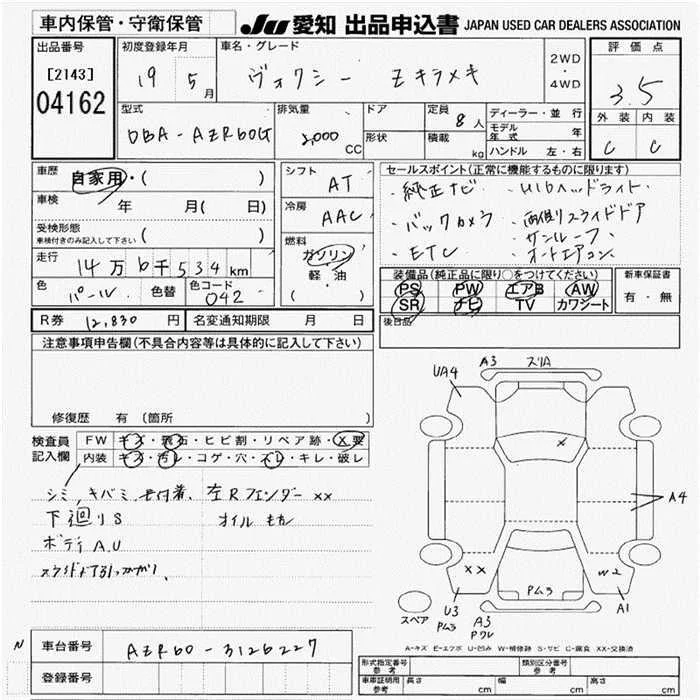 車内保管・守衛保管 JU 愛知 出品申込書 JAPAN USED CAR DEALERS ASSOCIATION
出品番号 初度登録年月 車名・グレード 評価点
[2143] 19 5月 ヴォクシー Zキラメキ 2WD・4WD 3.5
04162 型式 排気量 ドア 定員 8人 ディーラー・並行 外装 内装
DBA-AZR60G 2,000 CC 形状 積載 kg モデル年式 年 C C
ハンドル 左・右
車歴 自家用・( ) シフト AT セールスポイント(正常に機能するものに限ります)
車検 年 月( 日) 冷房 AAC ・純正ナビ ・HIDヘッドライト・
受検形態 ・バックカメラ ・両側スライドドア
車検付きのみ記入して下さい ( ) 燃料 ・サンルーフ・
走行 14万6千534km ガソリン ・ETC ・オートエアコン
色 パール 色替 色コード 042 軽・油 ( ・ ) 装備品(純正品に限り○をつけてください) 新車保証書
PS PW エアB AW 有・無
SR ナビ TV カワシート
R券 12,830円 名変通知期限 月 日 後日品
注意事項申告欄(不具合内容等は具体的に記入して下さい)
修復歴 有(箇所 )
検査員記入欄 FW キズ・飛石・ヒビ割・リペア跡・X要
内装 キズ・汚レ・コゲ・穴・スレ・キレ・破レ
シミ キバミ 左Rフェンダー XX
下廻りS オイルモレ
ボディA.U
UA4 A3 スリA
X
A4
XX W2
Pム3
スペア U3 Pム3 A3 Pワレ A1
A-キズ E-エクボ U-凹み W-補修跡 S-サビ C-腐食 XX-交換済
N 車台番号 AZR60-3126227
登録番号
形式指定番号 参考 類別区分番号 参考
車庫証明用 参考 長さ cm 幅 cm 高さ cm